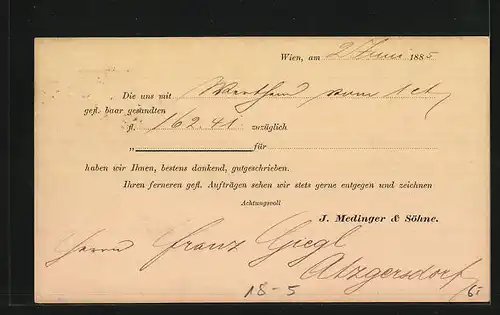 Wien, am 2 Juni 1885
Die uns mit Werthsend vom 1 ct
gefl. baar gesandten
fl. 162.41 zuzüglich
„ für
haben wir Ihnen, bestens dankend, gutgeschrieben.
Ihren ferneren gefl. Aufträgen sehen wir stets gerne entgegen und zeichnen
Achtungsvoll
J. Medinger & Söhne.
Herrn Franz Giegl
Atzgersdorf
18-5
6.-